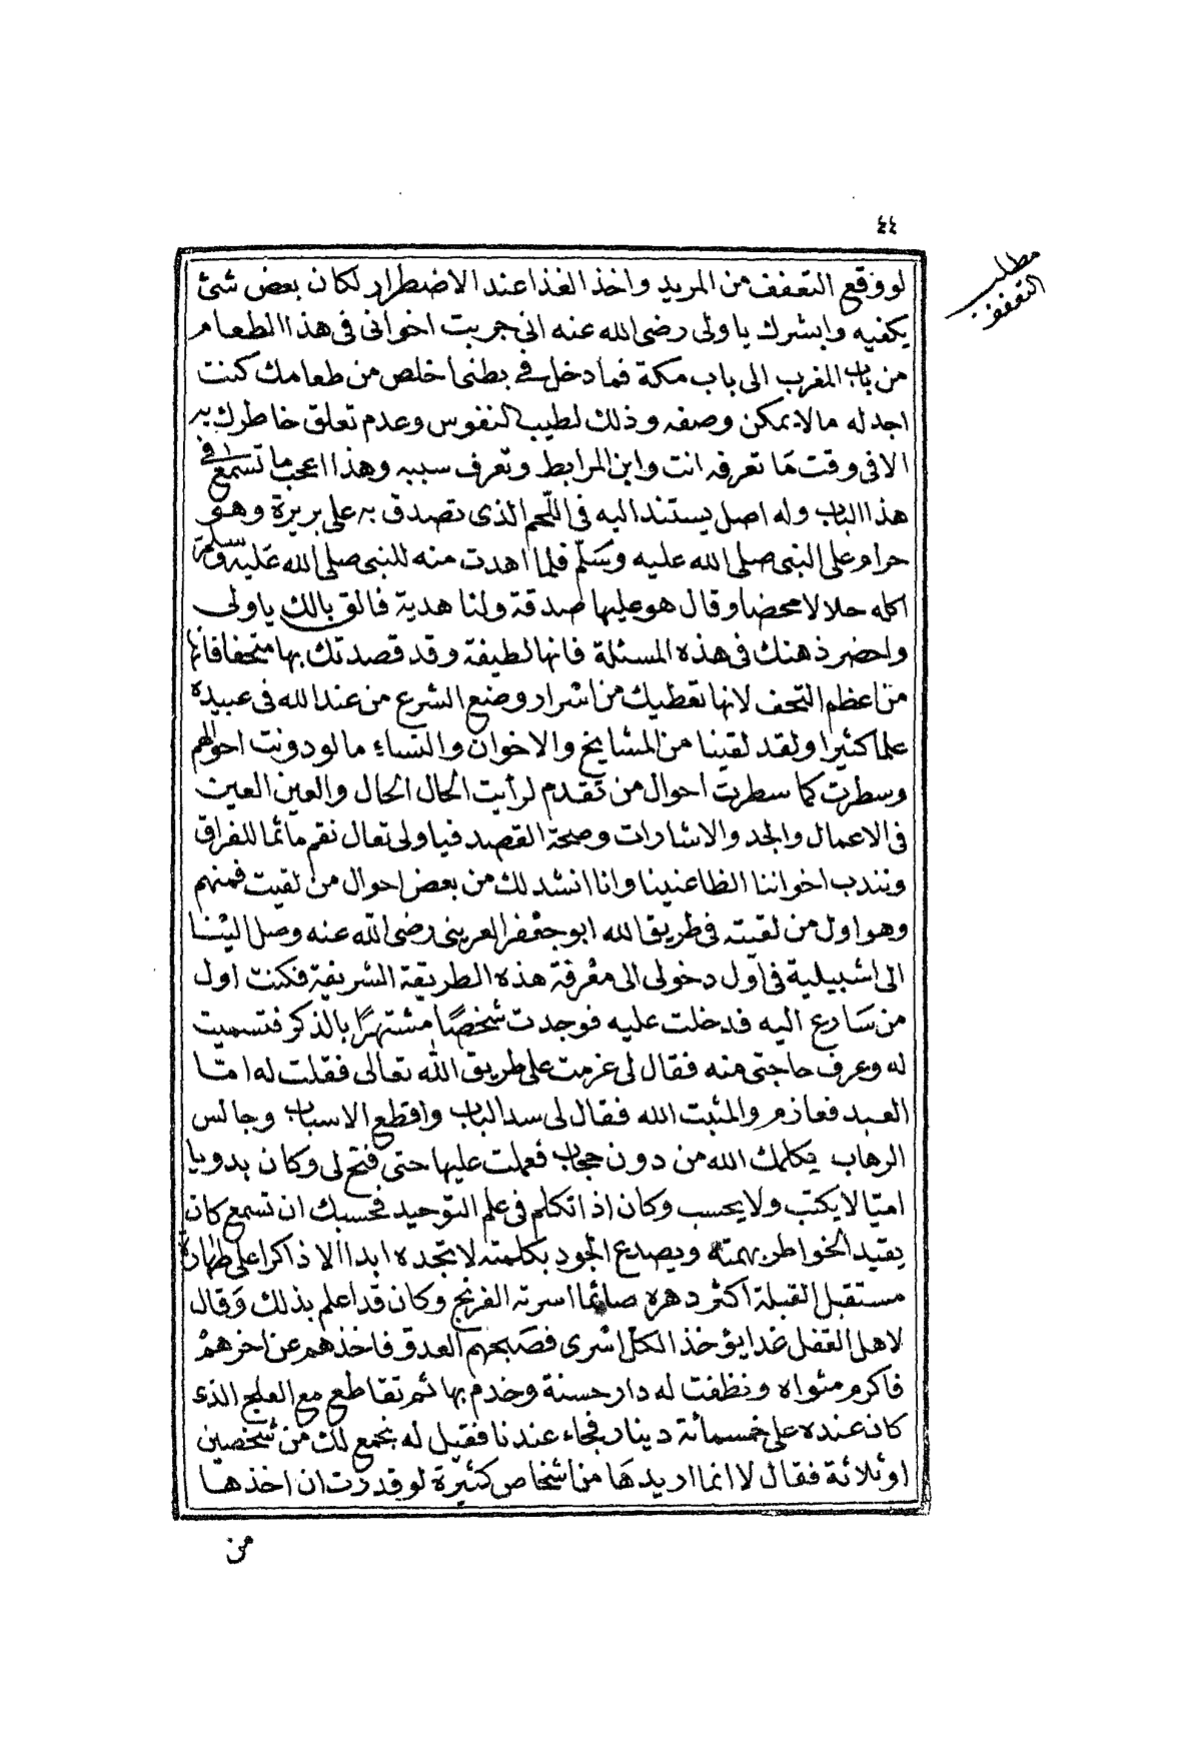 ٤٤
مطلب
التعفف
لو وقع التعفف من المريد واخذ الغذا عند الاضطرار لكان بعض شئ
يكفيه وابشرك يا ولى رضى الله عنه انى جربت اخوانى فى هذا الطعام
من باب المغرب الى باب مكة فما دخل فى بطنى اخلص من طعامك كنت
اجد له مالا يمكن وصفه وذلك لطيب النفوس وعدم تعلق خاطرك به
الا فى وقت ما تعرفه انت وابن المرابط وتعرف سببه وهذا اعجب ما تسمع فى
هذا الباب وله اصل يستند اليه فى اللحم الذى تصدق به على بريرة وهو
حرام على النبى صلى الله عليه وسلم فلما اهدت منه للنبى صلى الله عليه وسلم
اكله حلالا محضا وقال هو عليها صدقة ولنا هدية فالق بالك يا ولى
واحضر ذهنك فى هذه المسئلة فانها لطيفة وقد قصدتك بها متحفا فانها
من اعظم التحف لانها تعطيك من اسرار وضع الشرع من عند الله فى عبيده
علما كثيرا ولقد لقينا من المشايخ والاخوان والنساء ما لو دونت احوالهم
وسطرت كما سطرت احوال من تقدم لرأيت الحال الحال والعين العين
فى الاعمال والجد والاشارات وصحة القصد فيا ولى تعال نقم مأتما للفراق
ونندب اخواننا الظاعنينا وانا انشد لك من بعض احوال من لقيت فمنهم
وهو اول من لقيته فى طريق الله ابو جعفر العرينى رضى الله عنه وصل الينا
الى اشبيلية فى اول دخولى الى معرفة هذه الطريقة الشريفة فكنت اول
من سارع اليه فدخلت عليه فوجدت شخصا مشتهرا بالذكر فتسميت
له وعرف حاجتى منه فقال لى عزمت على طريق الله تعالى فقلت له امّا
العبد فعازم والمثبت الله فقال لى سد الباب واقطع الاسباب وجالس
الوهاب يكلمك الله من دون حجاب فعملت عليها حتى فتح لى وكان بدويا
اميّا لا يكتب ولا يحسب وكان اذا تكلم فى علم التوحيد فحسبك ان تسمع كان
يقيد الخواطر بهمته ويصدع الوجود بكلمته لا تجده ابدا الا ذاكرا على طهارة
مستقبل القبلة اكثر دهره صائما اسرته الفرنج وكان قد اعلم بذلك وقال
لاهل القفل غدا يؤخذ الكل اسرى فصبحهم العدو فاخذهم عن اخرهم
فاكرم مثواه ونظفت له دار حسنة وخدم بها ثم تقاطع مع العلج الذى
كان عنده على خمسمائة دينار فجاء عندنا فقيل له نجمع لك من شخصين
او ثلاثة فقال لا انما اريدها من اشخاص كثيرة لو قدرت ان اخذها
من